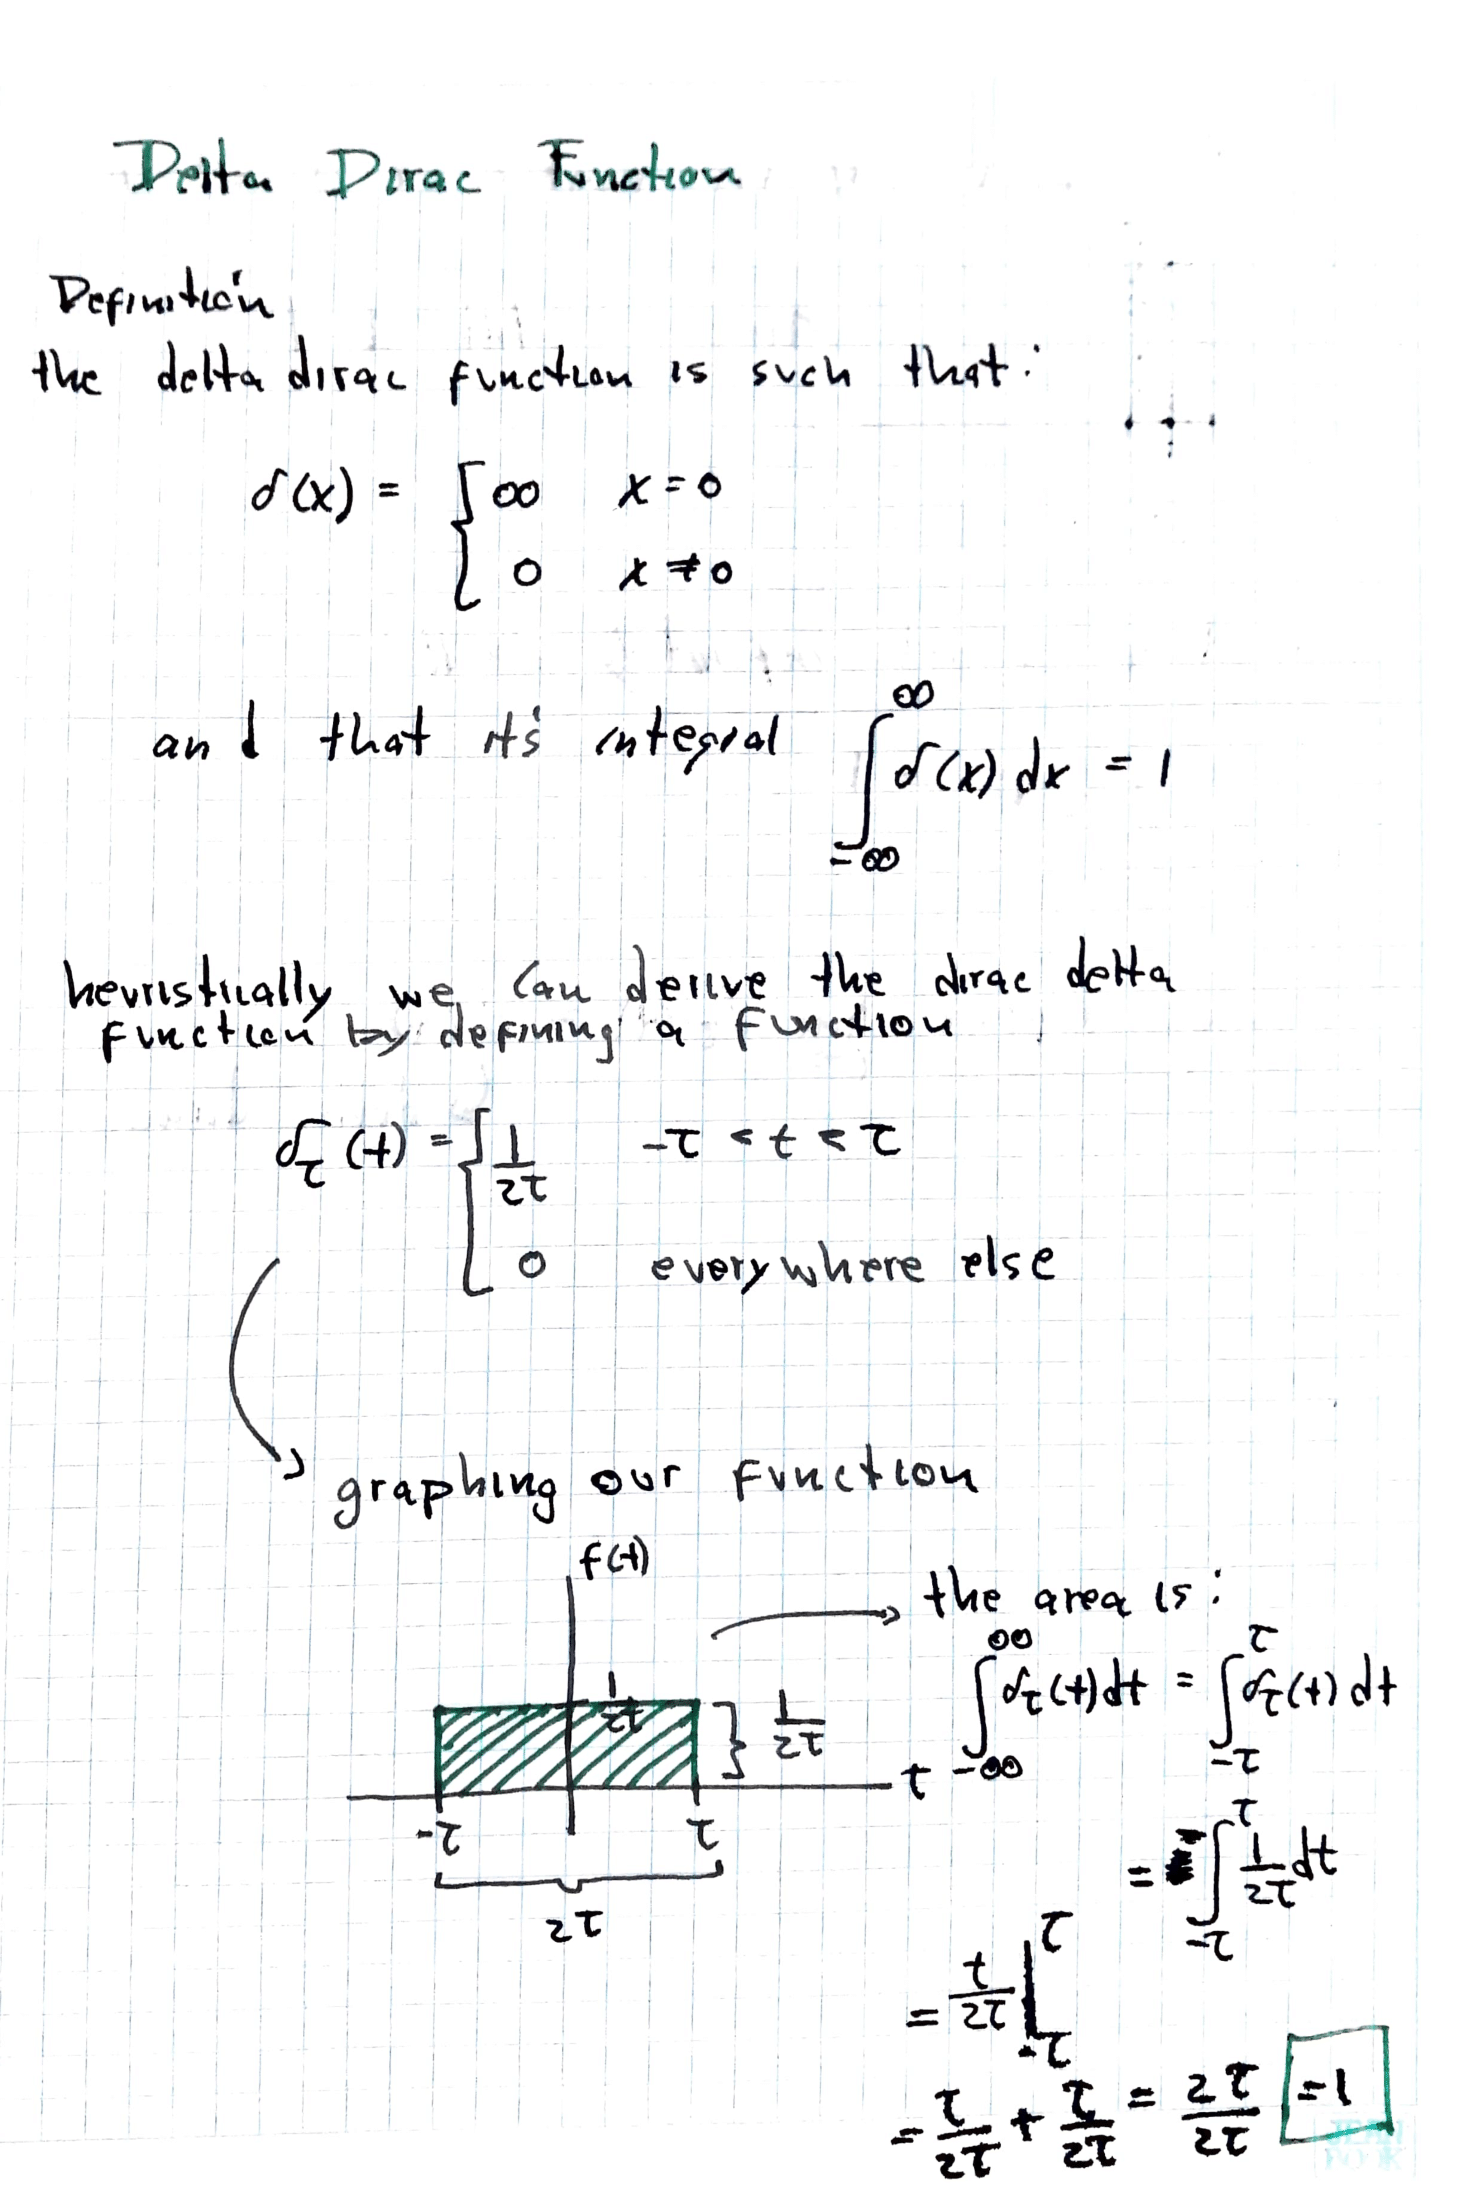 Delta Dirac Function
Definitión
the delta dirac function is such that:
δ(x) = { ∞ x = 0
0 x ≠ 0
and that it's integral ∫_{-∞}^{∞} δ(x) dx = 1
heuristically we can derive the dirac delta
function by defining a function
δ_τ (t) = { 1/2τ -τ < t < τ
0 everywhere else
graphing our function
f(t)
1/2τ
} 1/2τ
t
-τ τ
2τ
the area is:
∫_{-∞}^{∞} δ_τ(t) dt = ∫_{-τ}^{τ} δ_τ(t) dt
= ∫_{-τ}^{τ} 1/2τ dt
= t/2τ |_{-τ}^{τ}
= τ/2τ + τ/2τ = 2τ/2τ = 1
JEAN
BOOK